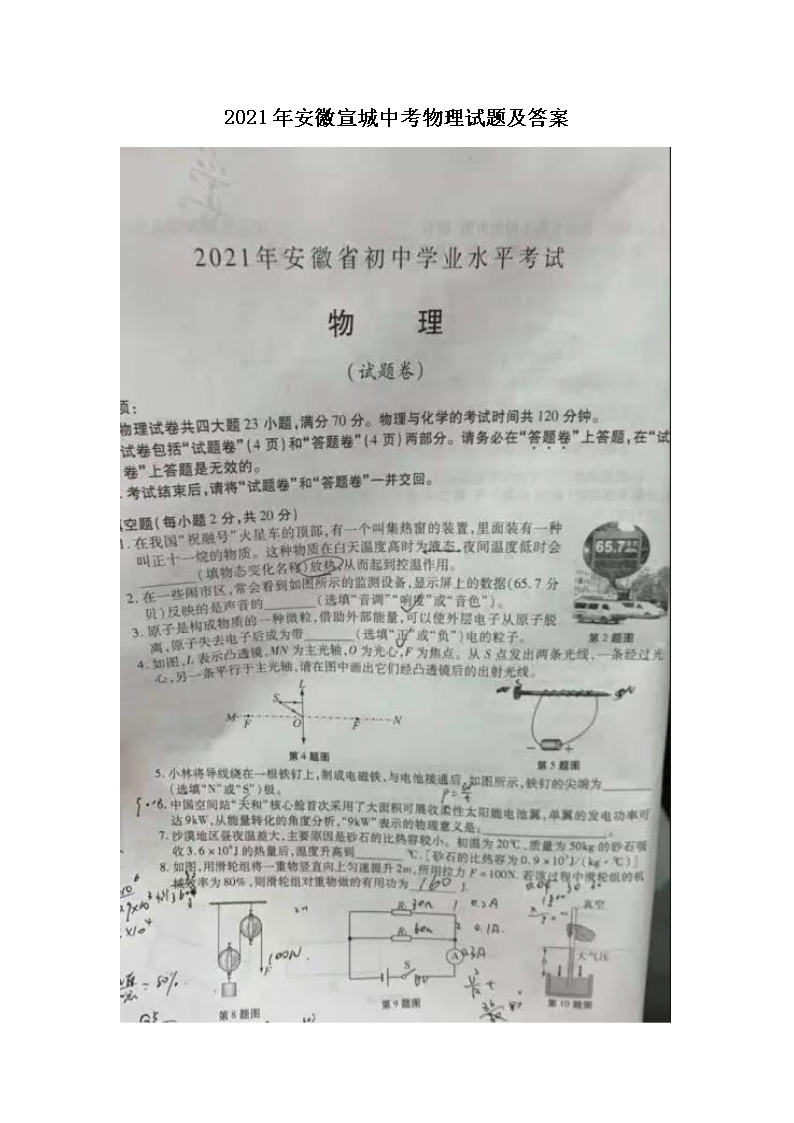 2021年安徽宣城中考物理试题及答案
2021年安徽省初中学业水平考试
物 理
(试题卷)
项:
物理试卷共四大题23小题,满分70分。物理与化学的考试时间共120分钟。
试卷包括“试题卷”(4页)和“答题卷”(4页)两部分。请务必在“答题卷”上答题,在“试
卷”上答题是无效的。
考试结束后,请将“试题卷”和“答题卷”一并交回。
空题(每小题2分,共20分)
1.在我国“祝融号”火星车的顶部,有一个叫集热窗的装置,里面装有一种
叫正十一烷的物质。这种物质在白天温度高时为液态,夜间温度低时会
(填物态变化名称)放热,从而起到控温作用。
65.7
2.在一些闹市区,常会看到如图所示的监测设备,显示屏上的数据(65.7分
贝)反映的是声音的______(选填“音调”“响度”或“音色”)。
3.原子是构成物质的一种微粒,借助外部能量,可以使外层电子从原子脱
离,原子失去电子后成为带______(选填“正”或“负”)电的粒子。
第2题图
4.如图,L表示凸透镜,MN为主光轴,O为光心,F为焦点。从S点发出两条光线,一条经过光
心,另一条平行于主光轴,请在图中画出它们经凸透镜后的出射光线。
L
S
S N
M F O F N
- +
第4题图
第5题图
5.小林将导线绕在一根铁钉上,制成电磁铁,与电池接通后,如图所示,铁钉的尖端为______
(选填“N”或“S”)极。
6.中国空间站“天和”核心舱首次采用了大面积可展收柔性太阳能电池翼,单翼的发电功率可
达9kW,从能量转化的角度分析,“9kW”表示的物理意义是:______。
7.沙漠地区昼夜温差大,主要原因是砂石的比热容较小。初温为20℃、质量为50kg的砂石吸
收3.6×10⁵J的热量后,温度升高到______℃.[砂石的比热容为0.9×10³J/(kg·℃)]
8.如图,用滑轮组将一重物竖直向上匀速提升2m,所用拉力F=100N.若该过程中滑轮组的机
械效率为80%,则滑轮组对重物做的有用功为 160 J.
R₁ 30Ω 0.2A
真空
R₂ 60Ω 0.1A
A 0.3A
大气压
100N
F
S
= 80%
第8题图
第9题图
第10题图